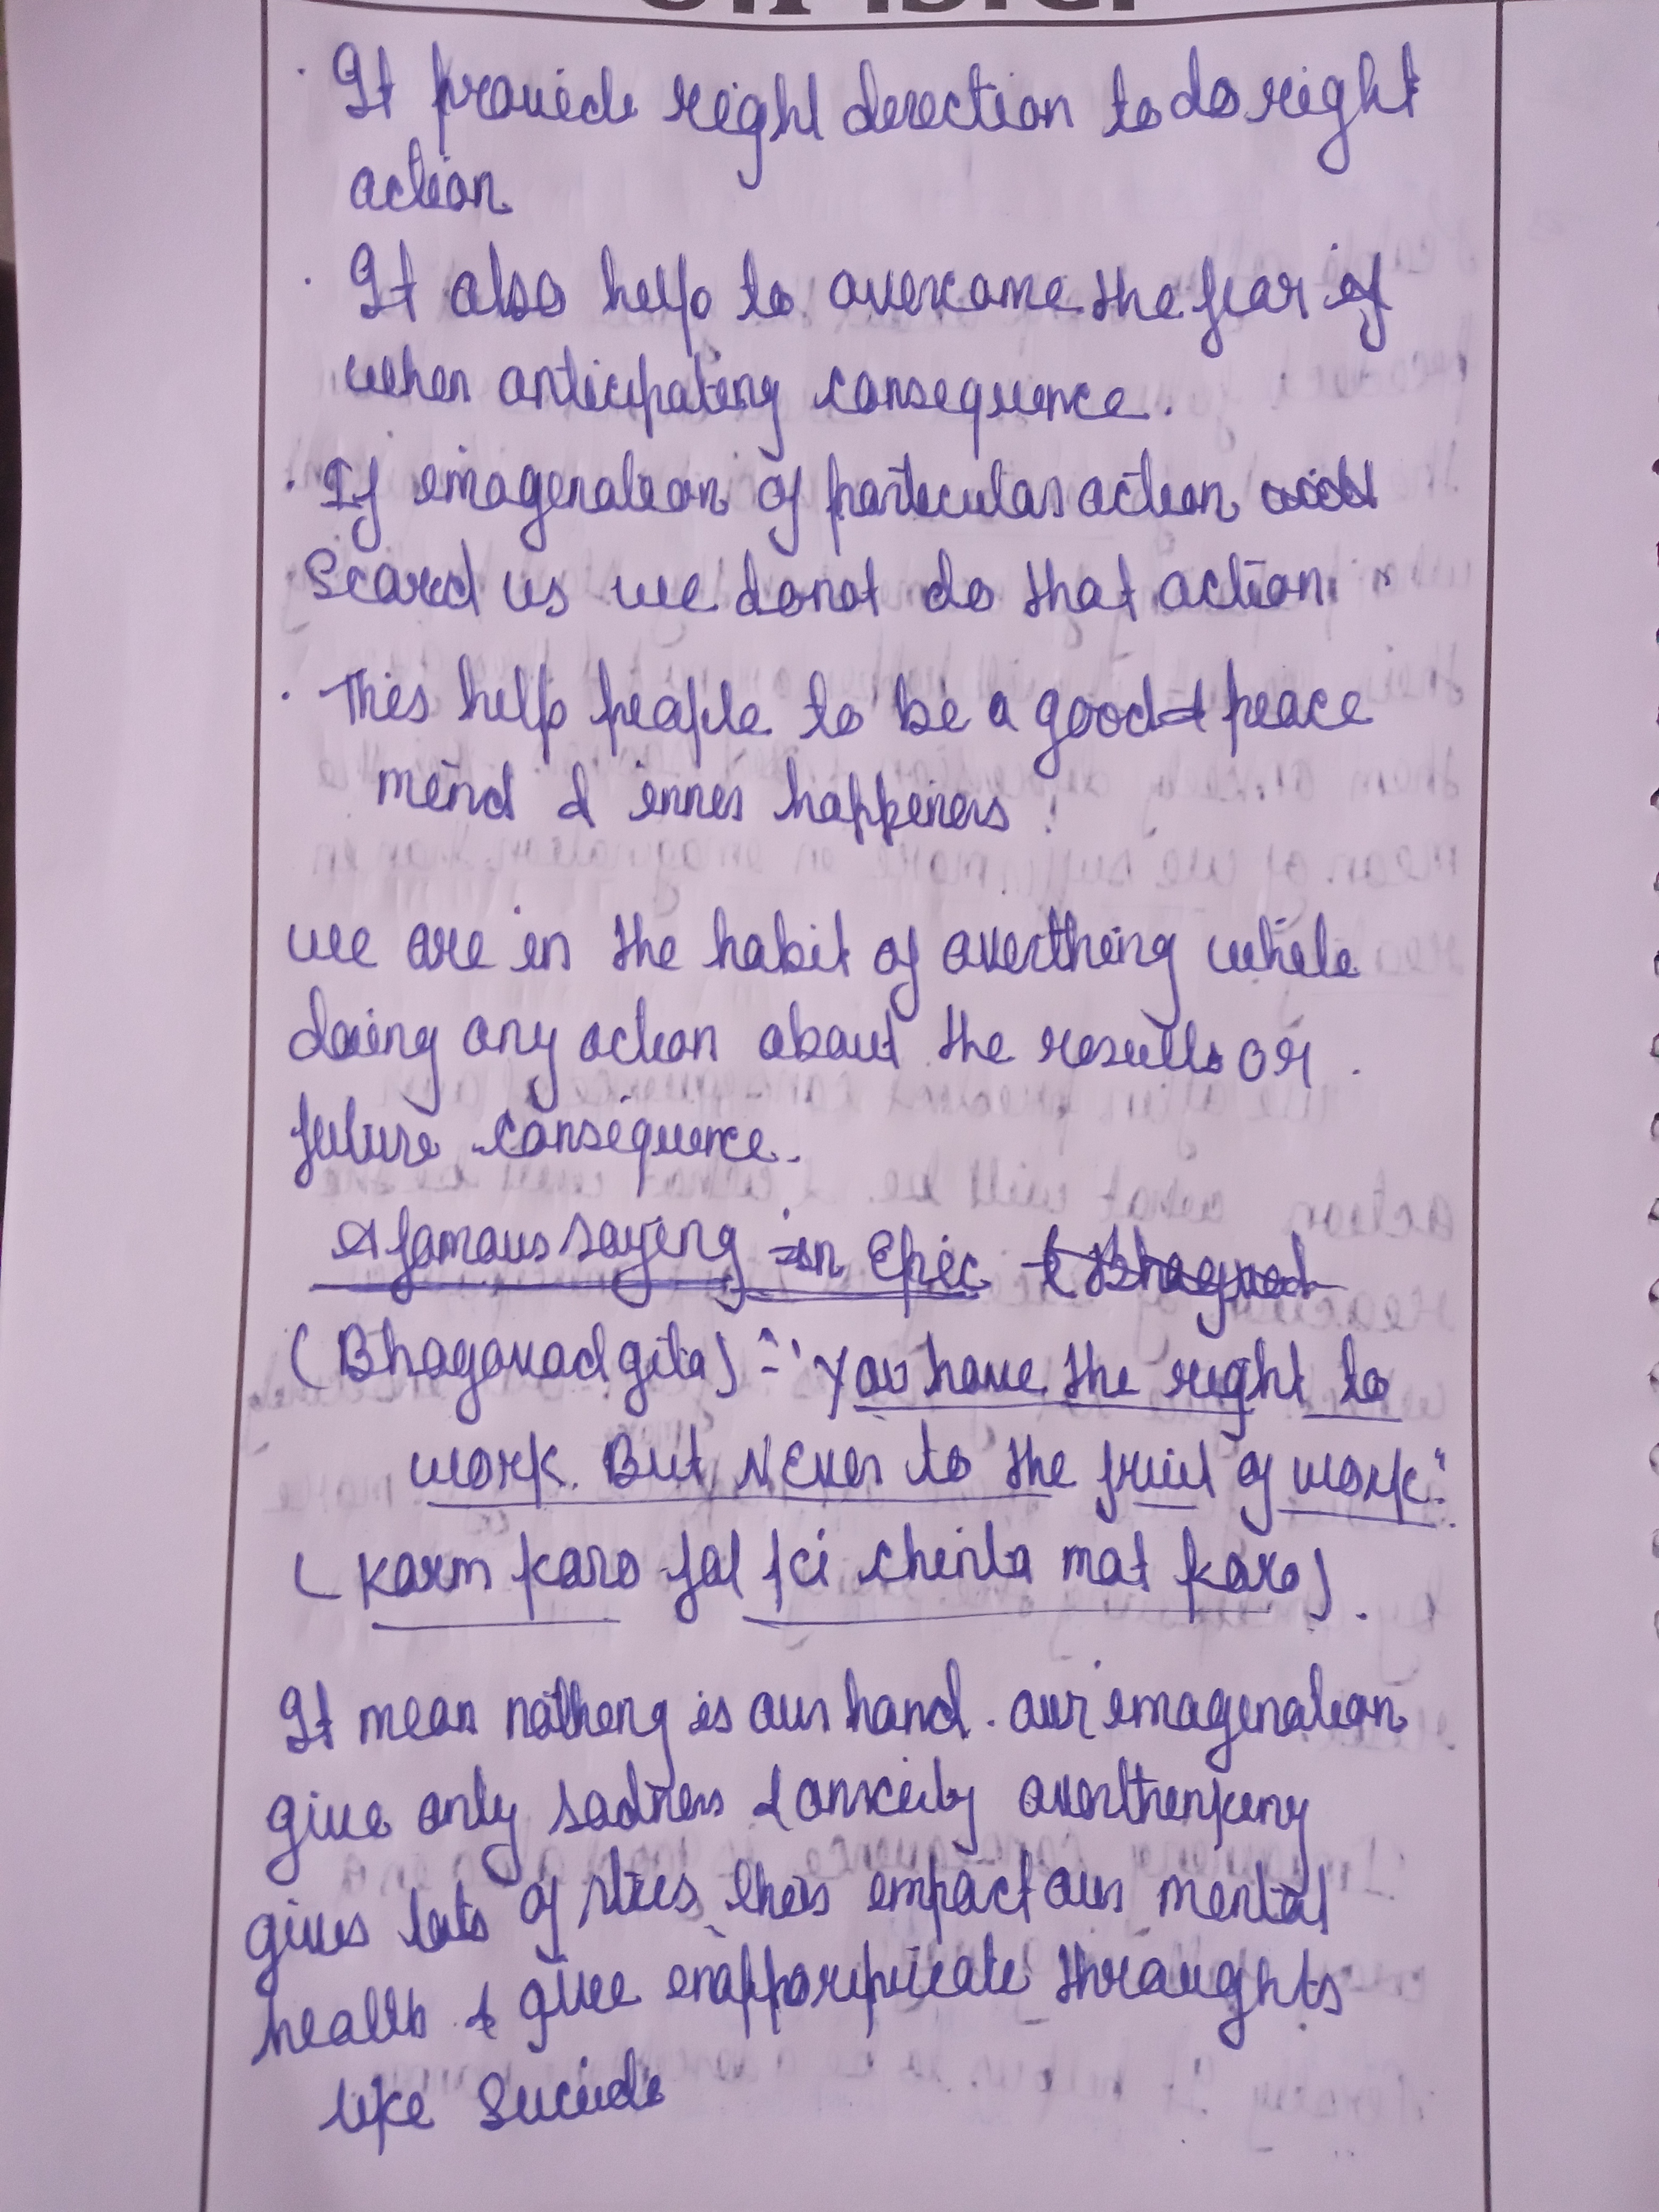 · It provide right direction to do right
action
· It also help to overcome the fear of
when anticipating consequence.
· If imagenation of particular action
Scared us we donot do that action
· This help people to be a good & peace
mind & inner happiness
we are in the habit of overthing while
doing any action about the results or
future consequence.
A famous saying in Epic
(Bhagavad gita) :- "You have the right to
work. But NEver to the fruit of work."
(Karm karo fal ki chinta mat karo).
It mean nothing is our hand. our imagenation
give only sadness & anxeity overthinking
gives lots of stres this impact our mental
health & give inapporipricate throughts
like Sucide